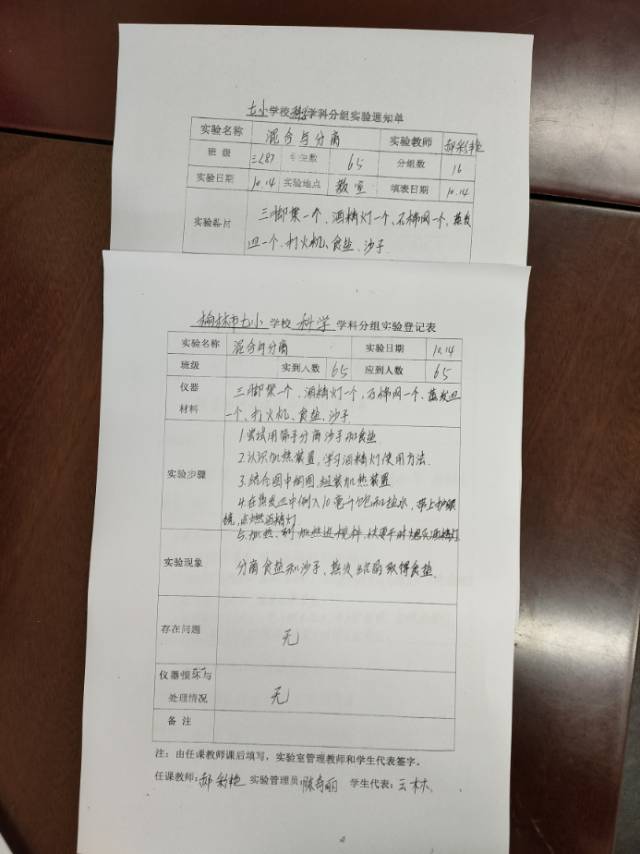 七小学校科学学科分组实验通知单
实验名称 混合与分离 实验教师 郝彩艳
班级 三(8) 学生数 65 分组数 16
实验日期 10.14 实验地点 教室 填表日期 10.14
实验器材 三脚架一个、酒精灯一个、石棉网一个、蒸发
皿一个、打火机、食盐、沙子
榆林市七小 学校 科学 学科分组实验登记表
实验名称 混合与分离 实验日期 10.14
班级 实到人数 65 应到人数 65
仪器 三脚架一个、酒精灯一个、石棉网一个、蒸发皿
材料 一个、打火机、食盐、沙子
1.尝试用筛子分离沙子和食盐
2.认识加热装置,学习酒精灯使用方法.
实验步骤
3.结合图中侧图,组装加热装置
4.在蒸发皿中倒入10毫升饱和盐水,带上护眼
镜,点燃酒精灯
5.加热、到加热边搅拌,
实验现象 分离食盐和沙子,蒸发 取得食盐.
存在问题 无
仪器损坏与
处理情况 无
备注
注:由任课教师课后填写,实验室管理教师和学生代表签字。
任课教师:郝彩艳 实验管理员: 学生代表: